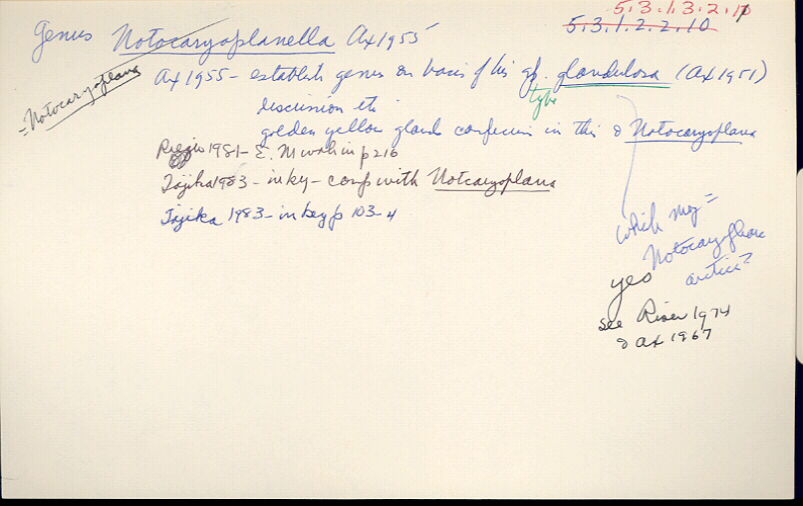 5.3.1.3.2.10
5.3.1.2.2.10
Genus Notocaryoplanella Ax 1955
= Notocaryoplana
Ax 1955 - establish genus on basis of his sp. glandulosa (Ax 1951)
type
discussion etc.
golden yellow glands conspicuous in this & Notocaryoplana
1981 - E. M p 216
Tajika 1983 - in key - comp with Notocaryoplana
Tajika 1983 - in key p 103-4
which may =
Notocaryoplana
arctica?
yes
see Riser 1974
& Ax 1967